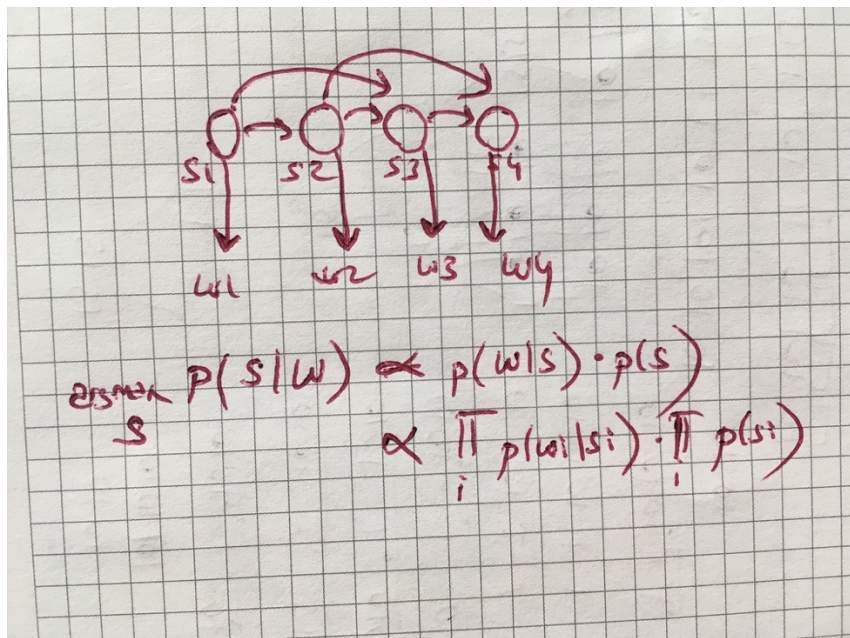 S1 S2 S3 S4
W1 W2 W3 W4
argmax P(S|W) ∝ p(W|S) · p(S)
S
∝ ∏ p(wi|si) · ∏ p(si)
i i